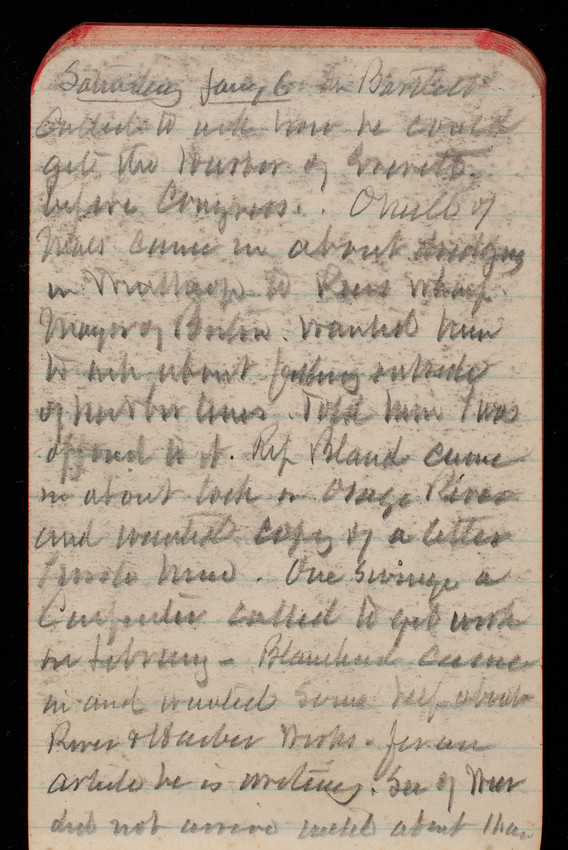 Saturday Jany 6. Mr Bartlett
called to ask how he could
get the Harbor of Everett
before Congress. O'Neill of
News came in about dredging
in to Rens Wharf.
Mayor of Boston. Wanted him
to ask about filling outside
of harbor lines. Told him I was
opposed to it. Rep Bland came
in about lock on Osage River
and wanted copy of a letter
I wrote him. One Swinge a
Carpenter called to get work
on Library - Blanchard came
in and wanted some help about
River & Harbor Works. for an
article he is writing. Sec of War
did not arrive until about